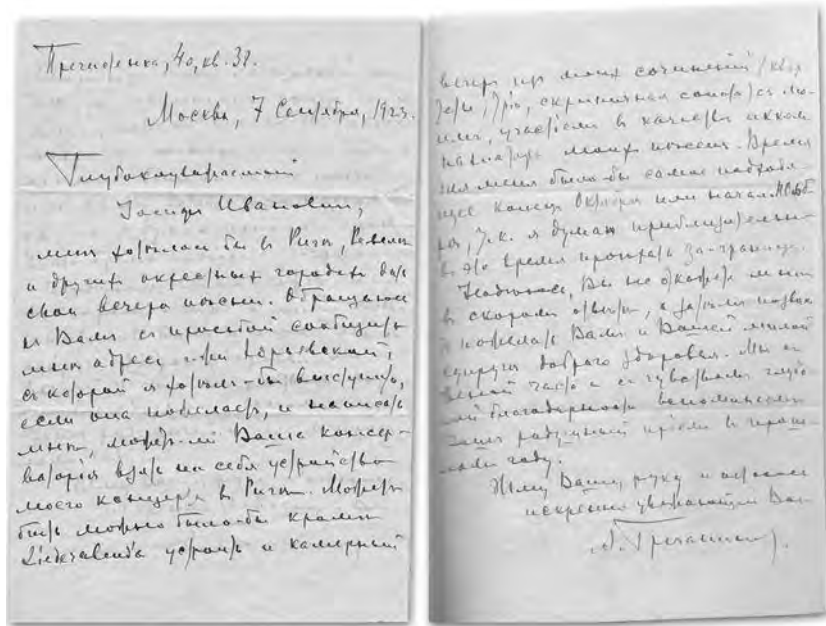 Пречистенка, 40, кв. 38.
Москва, 7 Сентября, 1923.
Глубокоуважаемый
Иванович,
мне хотелось бы в Риге, Ревеле
и других окрестных городах дать
свои вечера песни. Обращаюсь
к Вам с просьбой сообщить
мне адрес г-жи
с которой я хотел-бы выступить,
если она пожелает, и написать
мне, может-ли Ваша консер-
ваторія взять на себя устройство
моего концерта в Риге. Может
быть можно было-бы кроме
Liederabend'а устроить и камерный
вечер из моих сочинений /квар
тет, тріо, скрипичная соната/ с мо-
им участіем в качестве аккомп
моих песен. Время
для меня было-бы самое подходя-
щее конец Октября или начало Нояб
ря, т.к. я думаю приблизительно
в это время проехать за-границу.
Надеюсь, Вы не откажете мне
в скором ответе, а затем позвол
пожелать Вам и Вашей милой
супруге доброго здоровья. Мы с
женой часто и с чувством глубо
кой благодарности вспоминаем
Ваш радушный прием в прош-
лом году.
Жму Вашу руку и остаюсь
искренно уважающий Вас
А. Гречанинов.